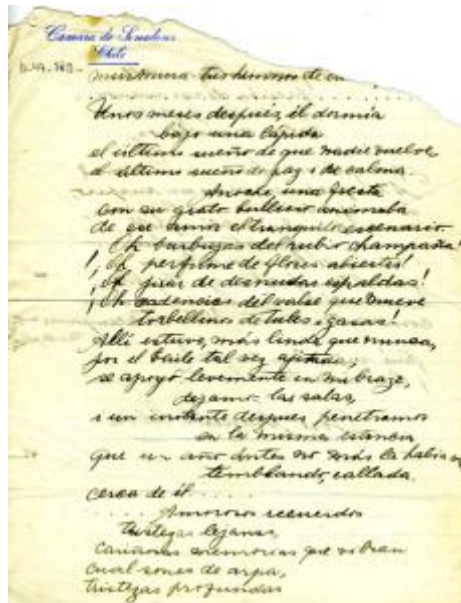 Cámara de Senadores
Chile
murmura tus himnos de
Unos meses después, él dormía
bajo una lápida
el último sueño de que nadie vuelve,
el último sueño de paz i de calma.
Anoche, una fiesta
con su grato bullicio animaba
de ese amor el tranquilo escenario.
¡Oh burbujas del rubio champaña!
¡Oh perfume de flores abiertas!
¡Oh girar de desnudas espaldas!
¡Oh cadencias del valse que mueve
torbellinos de tules i gasas!
Allí estuvo, más linda que nunca,
por el baile tal vez
se apoyó levemente en mi brazo,
dejamos las salas,
i un instante después penetramos
en la misma estancia
que un año antes no más la había
temblando, callada,
cerca de él.....
.... Amorosos recuerdos
tristezas lejanas,
cariñosas memorias que vibran
cual sones de arpa,
tristezas profundas